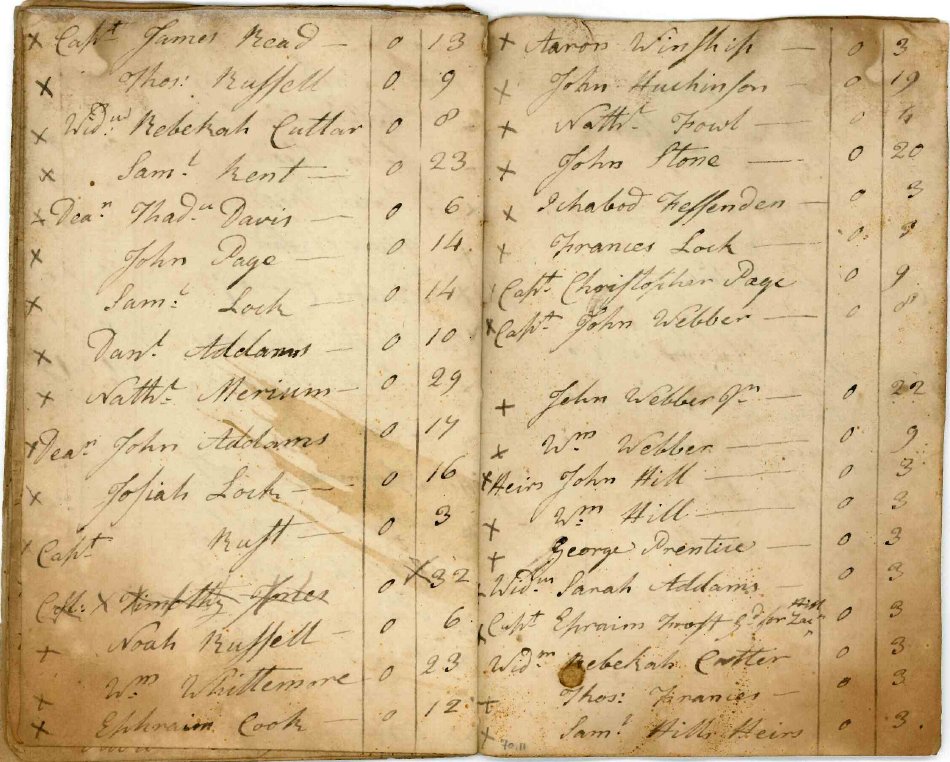 x Capt James Read — 0 13
x Thos: Russell 0 9
x Widw Rebekah Cuttar 0 8
x Saml Kent — 0 23
x Dean Thadu Davis — 0 6
x John Page — 0 14
x Saml Lock — 0 14
x Danl Addams — 0 10
x Nathl Merium — 0 29
x Dean John Addams 0 17
x Josiah Lock — 0 16
Capt Rust — 0 3
Capt: x Timothy Jones 0 x 32
x Noah Russell — 0 6
x Wm Whittemore 0 23
x Ephraim Cook — 0 12
x Aaron Winship — 0 3
x John Huchinson — 0 19
x Nathl Fowl — 0 4
x John Stone — 0 20
x Ichabod Fessenden — 0 3
x Frances Lock — 0 8
Capt Christopher Page 0 9
x Capt John Webber — 0 8
x John Webber Jn — 0 22
x Wm Webber — 0 9
x Heirs John Hill — 0 3
x Wm Hill — 0 3
x George Prentice — 0 3
Widw Sarah Addams — 0 3
x Capt Ephraim Frost Gd for Zacr Hill 0 3
Widw Rebekah Cutter 0 3
x Thos: Frances — 0 3
x Saml Hills Heirs 0 3.
70.11